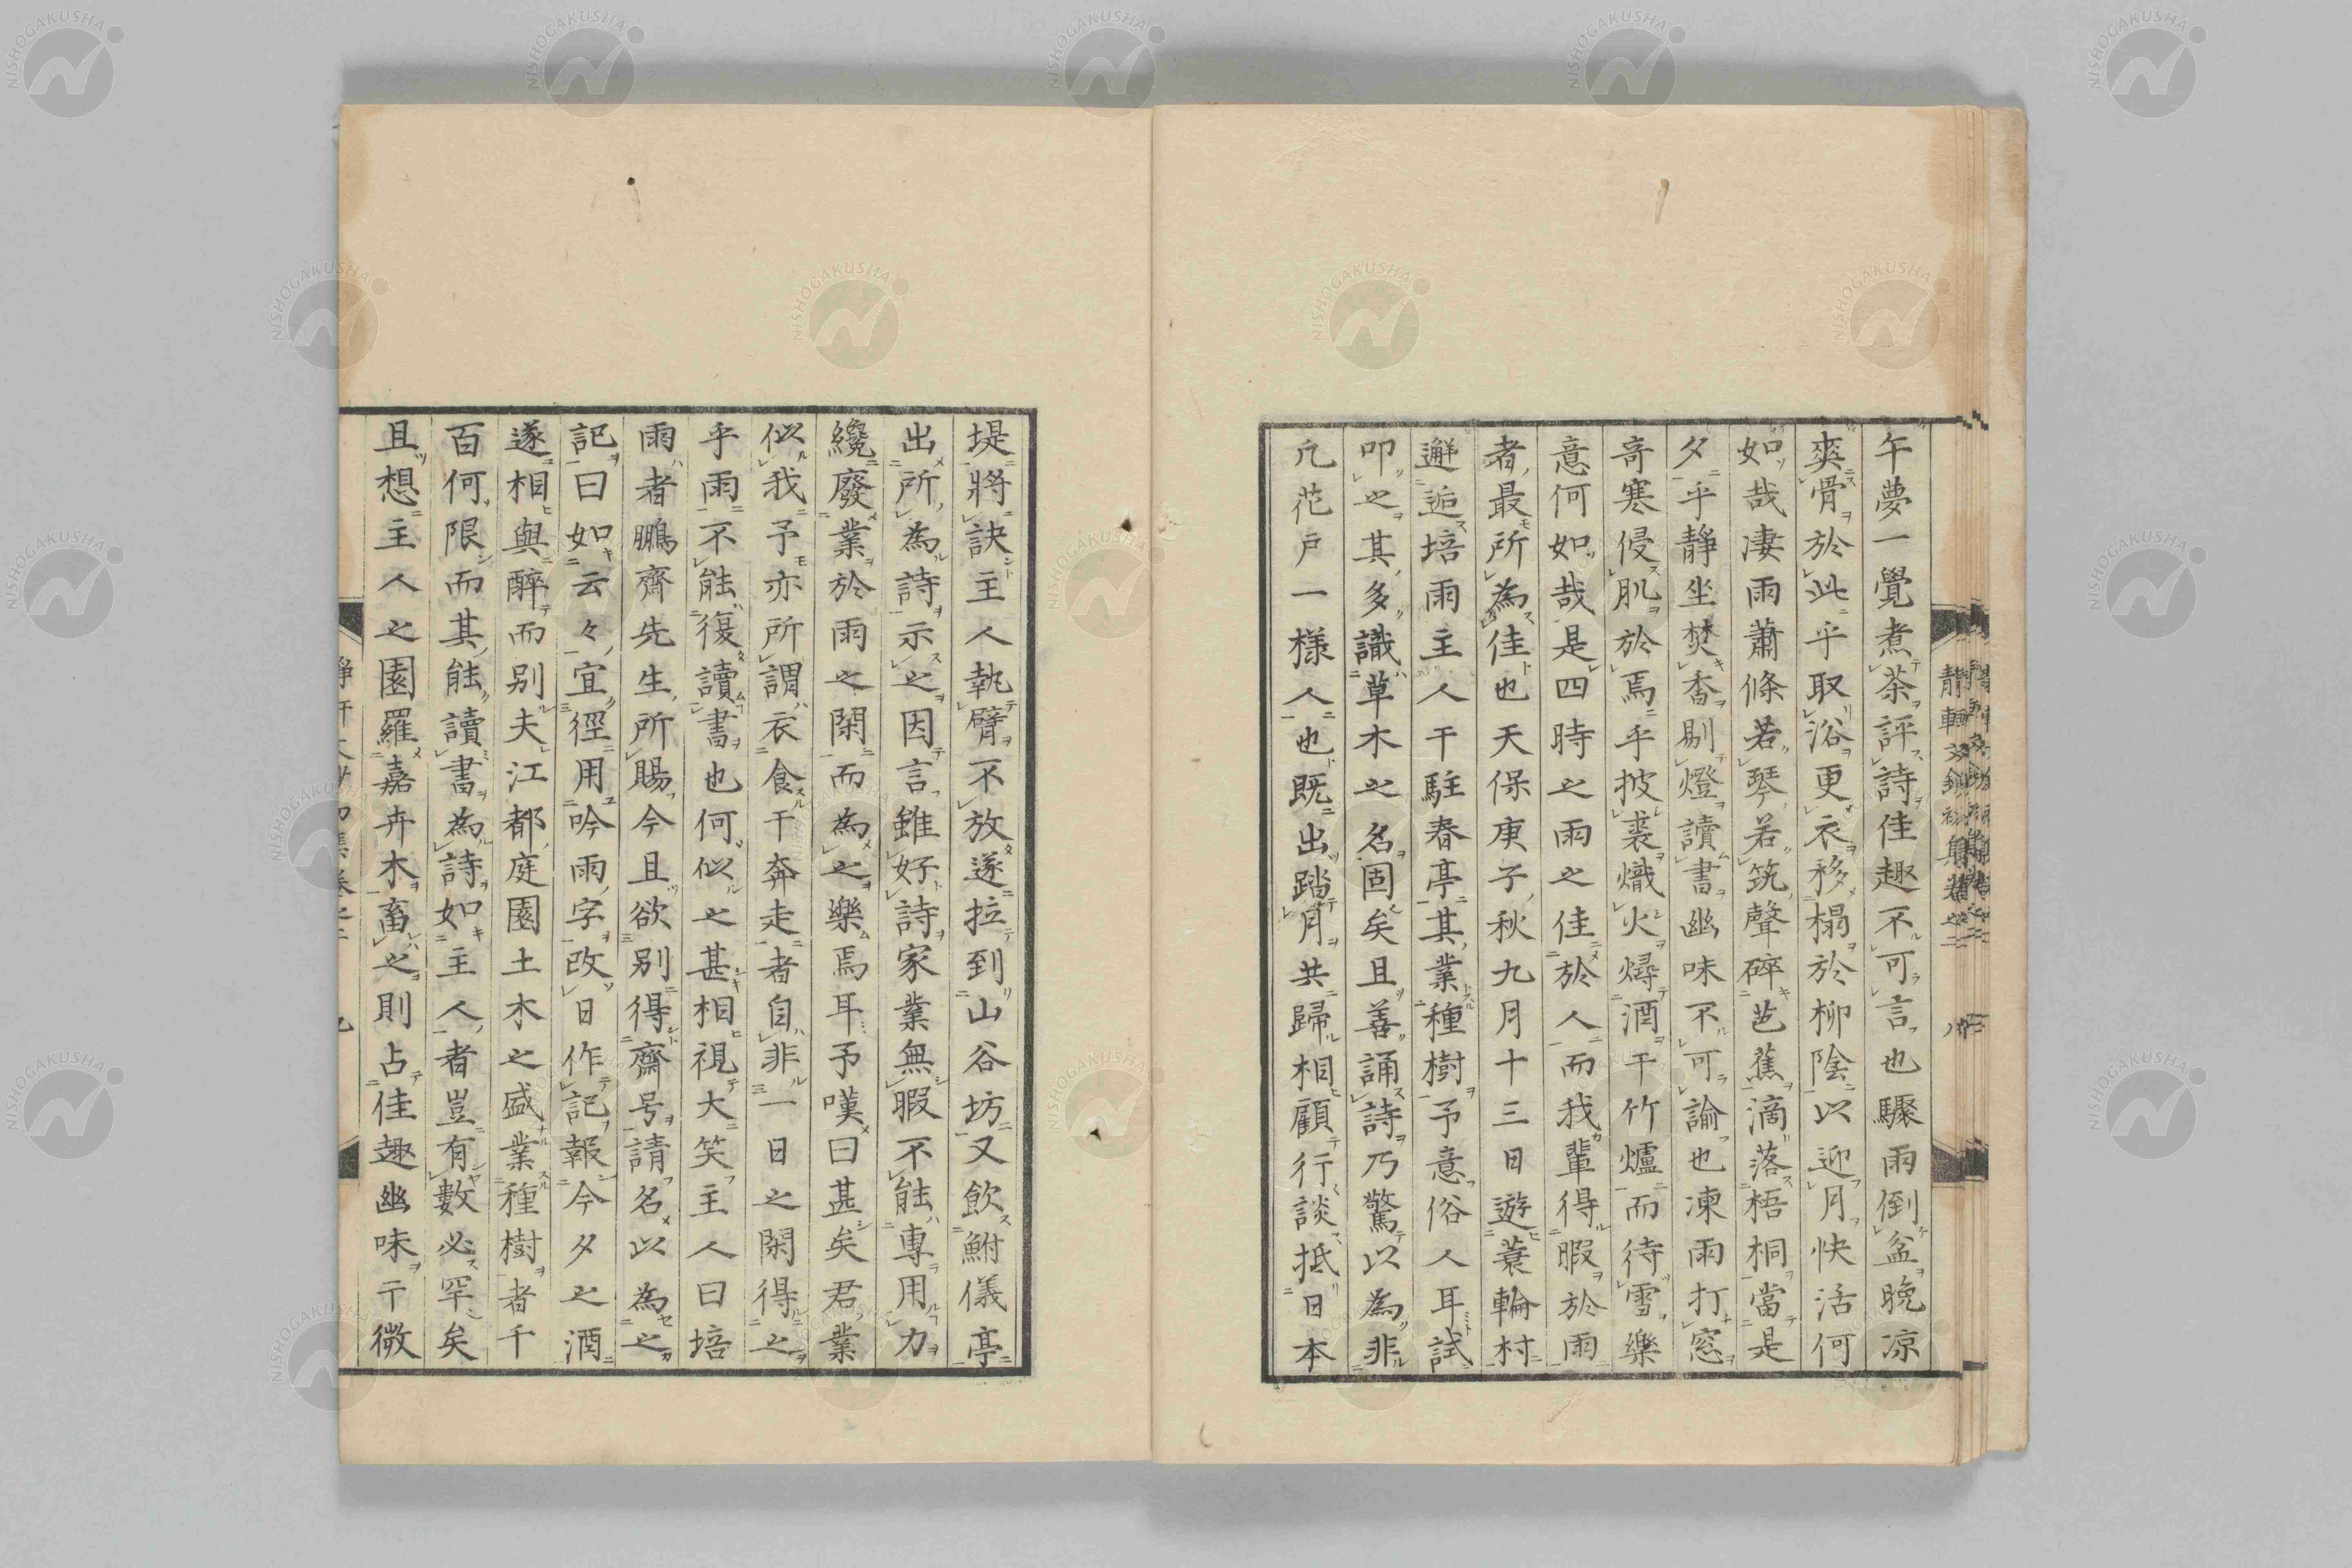 午夢一覺煮茶評詩佳趣不可言也驟雨倒盆晩凉
爽骨於此乎取浴更衣移榻於柳陰以迎月快活何
如哉凄雨蕭條若琴若筑聲碎芭蕉滴落梧桐當是
夕乎靜坐焚香剔燈讀書幽味不可諭也凍雨打窓
奇寒侵肌於焉乎披裘熾火燖酒于竹爐而待雪樂
意何如哉是四時之雨之佳於人而我輩得暇於雨
者最所為佳也天保庚子秋九月十三日遊蓑輪村
邂逅培雨主人于駐春亭其業種樹予意俗人耳試
叩之其多識草木之名固矣且善誦詩乃驚以為非
凡花戸一樣人也既出踏月共歸相顧行談抵日本
堤將訣主人執臂不放遂拉到山谷坊又飲鮒儀亭
出所為詩示之因言雖好詩家業無暇不能專用力
纔廢業於雨之閑而為之樂焉耳予嘆曰甚矣君業
似我予亦所謂衣食于奔走者自非一日之閑得之
乎雨不能復讀書也何似之甚相視大笑主人曰培
雨者鵬齋先生所賜今且欲別得齋号請名以為之
記曰如云々宜徑用吟雨字改日作記報今夕之酒
遂相與醉而別夫江都庭園土木之盛業種樹者千
百何限而其能讀書為詩如主人者豈有數必罕矣
且想主人之園羅嘉卉木畜之則占佳趣幽味于微
靜軒文鈔初集卷之二
NISHOGAKUSHA